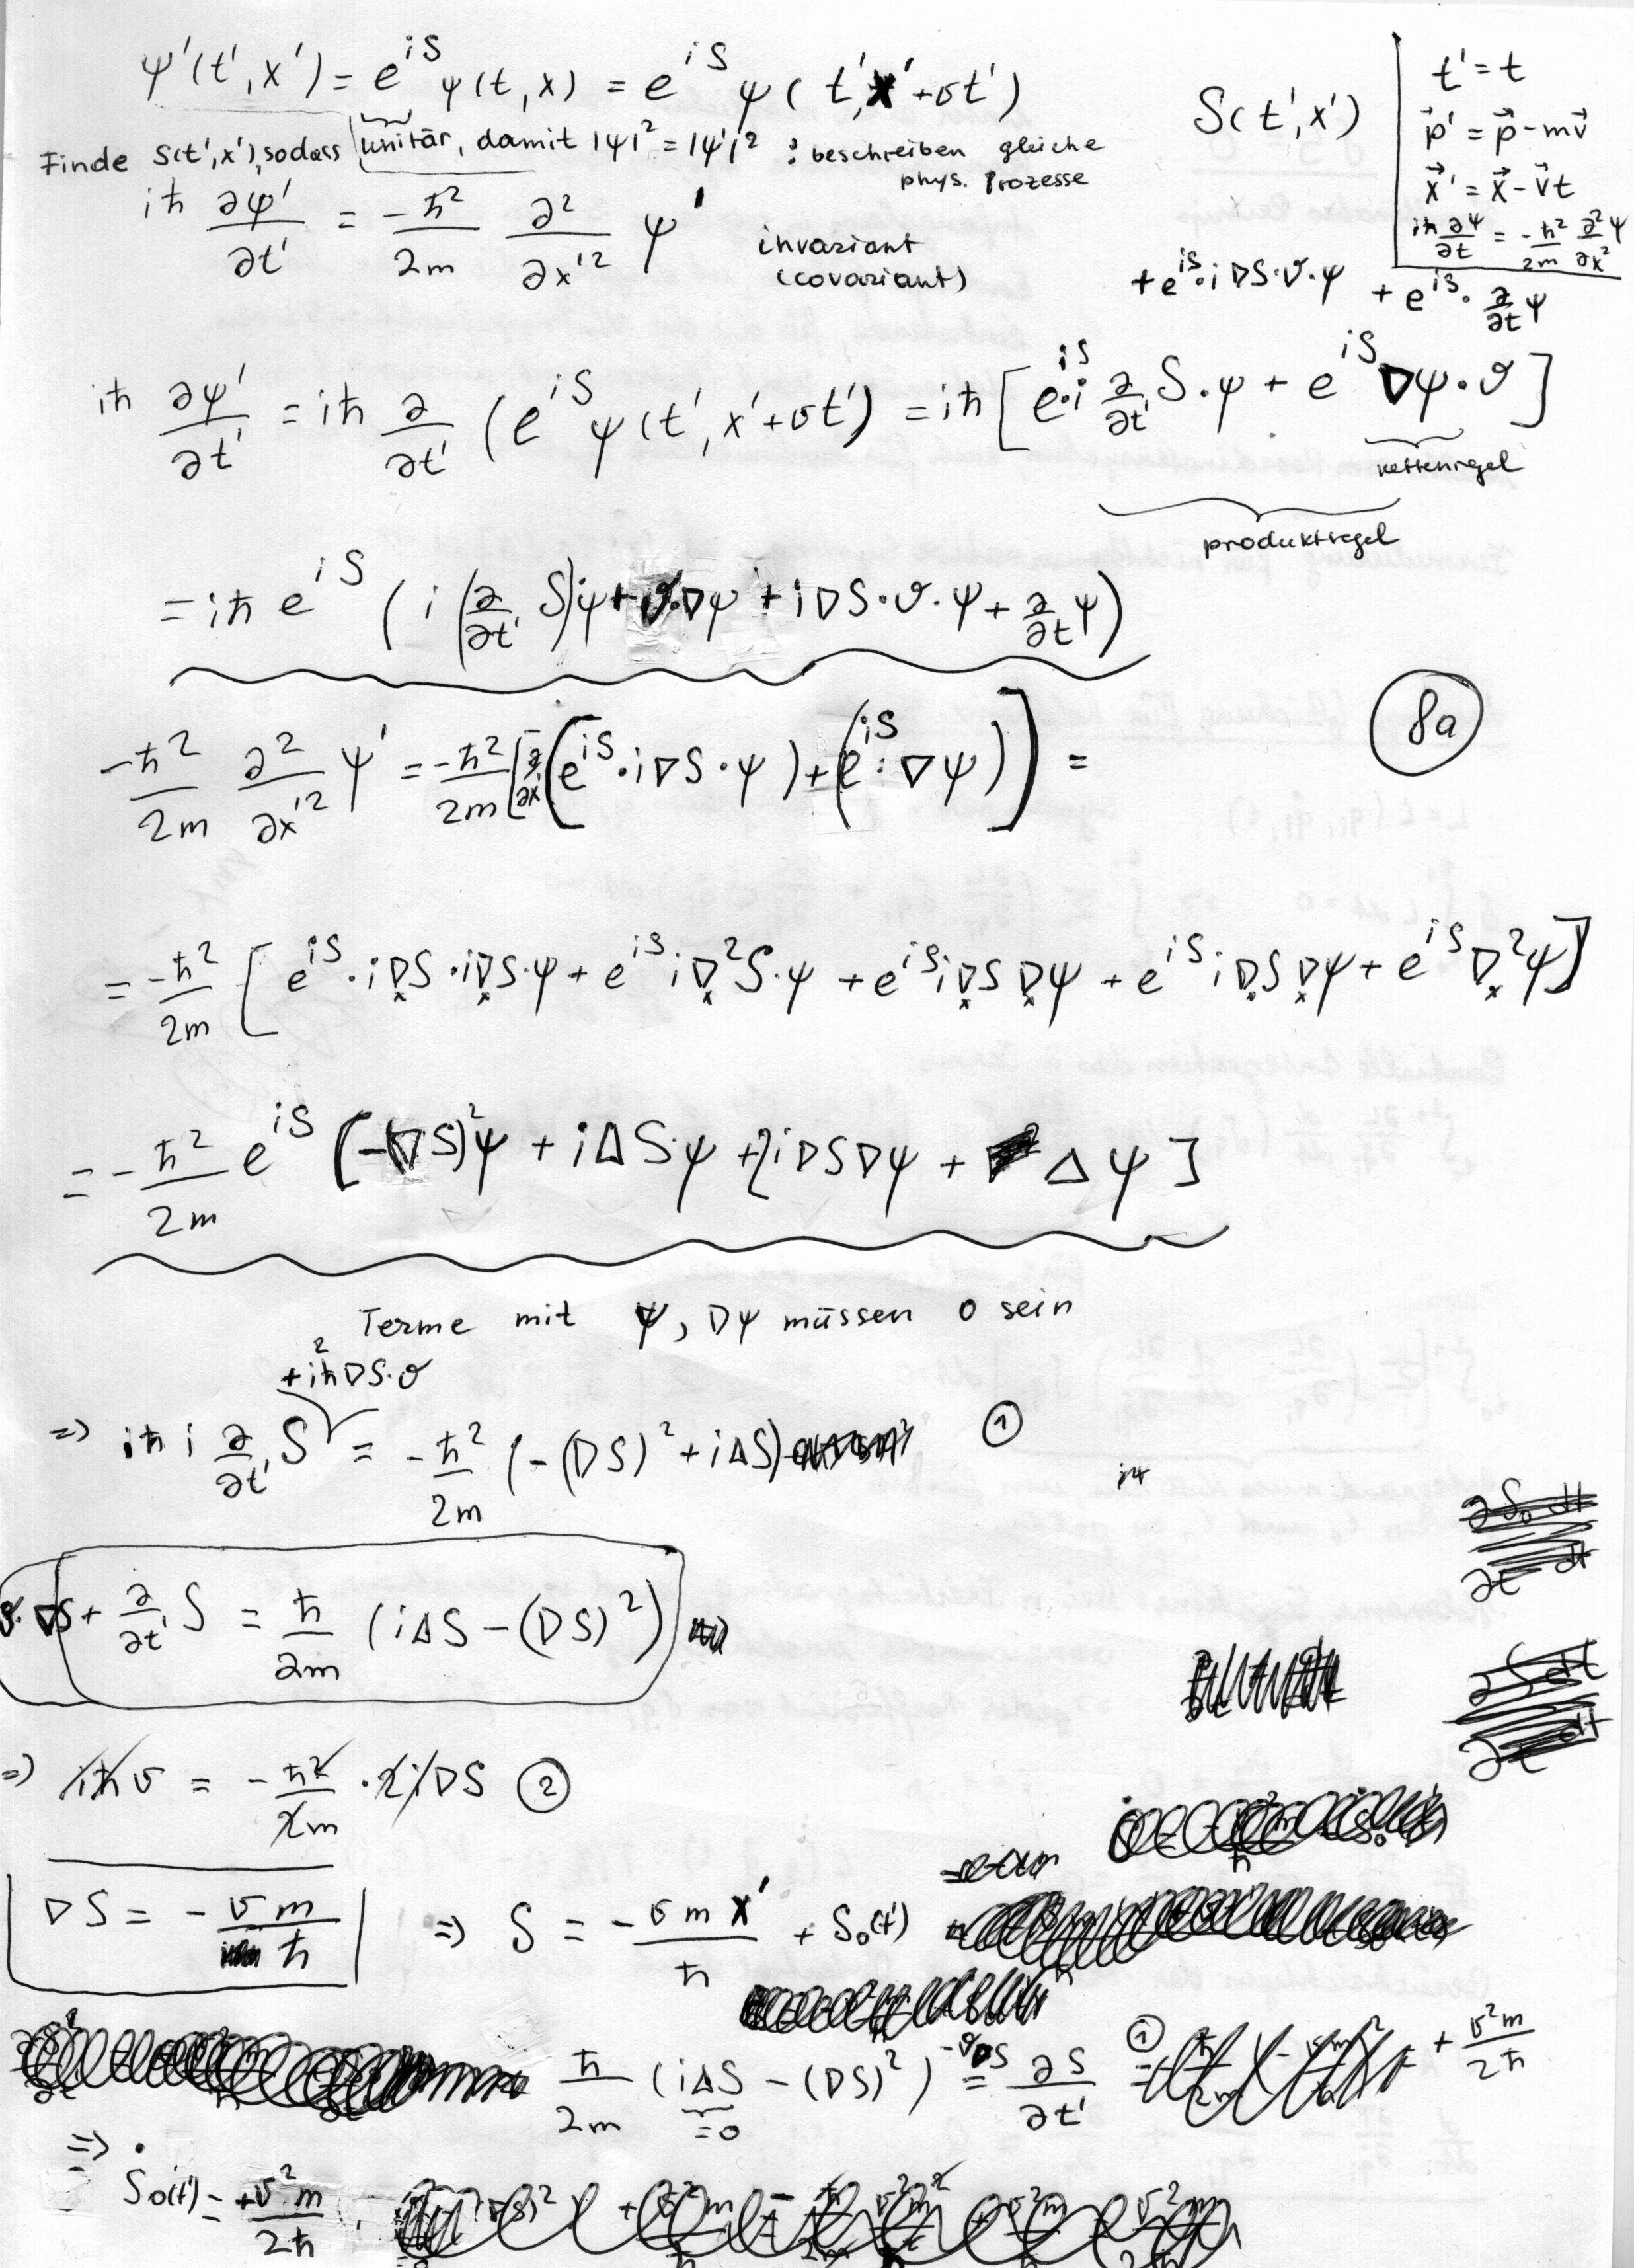 ψ'(t', x') = e^{iS} ψ(t, x) = e^{iS} ψ(t', x' + vt')
S(t', x')
t' = t
p⃗' = p⃗ - mv⃗
x⃗' = x⃗ - v⃗t
iħ ∂ψ/∂t = -ħ²/2m ∂²/∂x² ψ
Finde S(t', x'), sodass unitär, damit |ψ|² = |ψ'|² : beschreiben gleiche
phys. Prozesse
iħ ∂ψ'/∂t' = -ħ²/2m ∂²/∂x'² ψ'
invariant
(covariant)
+ e^{iS} · i∇S · v · ψ + e^{iS} · ∂/∂t ψ
iħ ∂ψ'/∂t' = iħ ∂/∂t' (e^{iS} ψ(t', x' + vt') = iħ [e^{iS} · i ∂/∂t' S · ψ + e^{iS} ∇ψ · v]
kettenregel
produktregel
= iħ e^{iS} (i (∂/∂t' S)ψ + v · ∇ψ + i∇S · v · ψ + ∂/∂t ψ)
8a
-ħ²/2m ∂²/∂x'² ψ' = -ħ²/2m [∂/∂x' (e^{iS} · i∇S · ψ) + (e^{iS} · ∇ψ)] =
= -ħ²/2m [e^{iS} · i∇ₓS · i∇ₓS · ψ + e^{iS} i∇ₓ²S · ψ + e^{iS} i∇ₓS ∇ₓψ + e^{iS} i∇ₓS ∇ₓψ + e^{iS} ∇ₓ²ψ]
= -ħ²/2m e^{iS} [-(∇S)²ψ + iΔS·ψ + 2i∇S∇ψ + Δψ]
Terme mit ψ, ∇ψ müssen 0 sein
+i²ħ∇S·v
=> iħ i ∂/∂t' S = -ħ²/2m (-(∇S)² + iΔS) ①
v·∇S + ∂/∂t' S = ħ/2m (iΔS - (∇S)²)
=> iħv = -ħ²/2m · 2i∇S ②
∇S = -vm/ħ => S = -vmx'/ħ + S₀(t')
ħ/2m (iΔS - (∇S)²) - v∇S = ∂S/∂t' ①= + v²m/2ħ
=0
=> Ṡ₀(t') = +v²m/2ħ